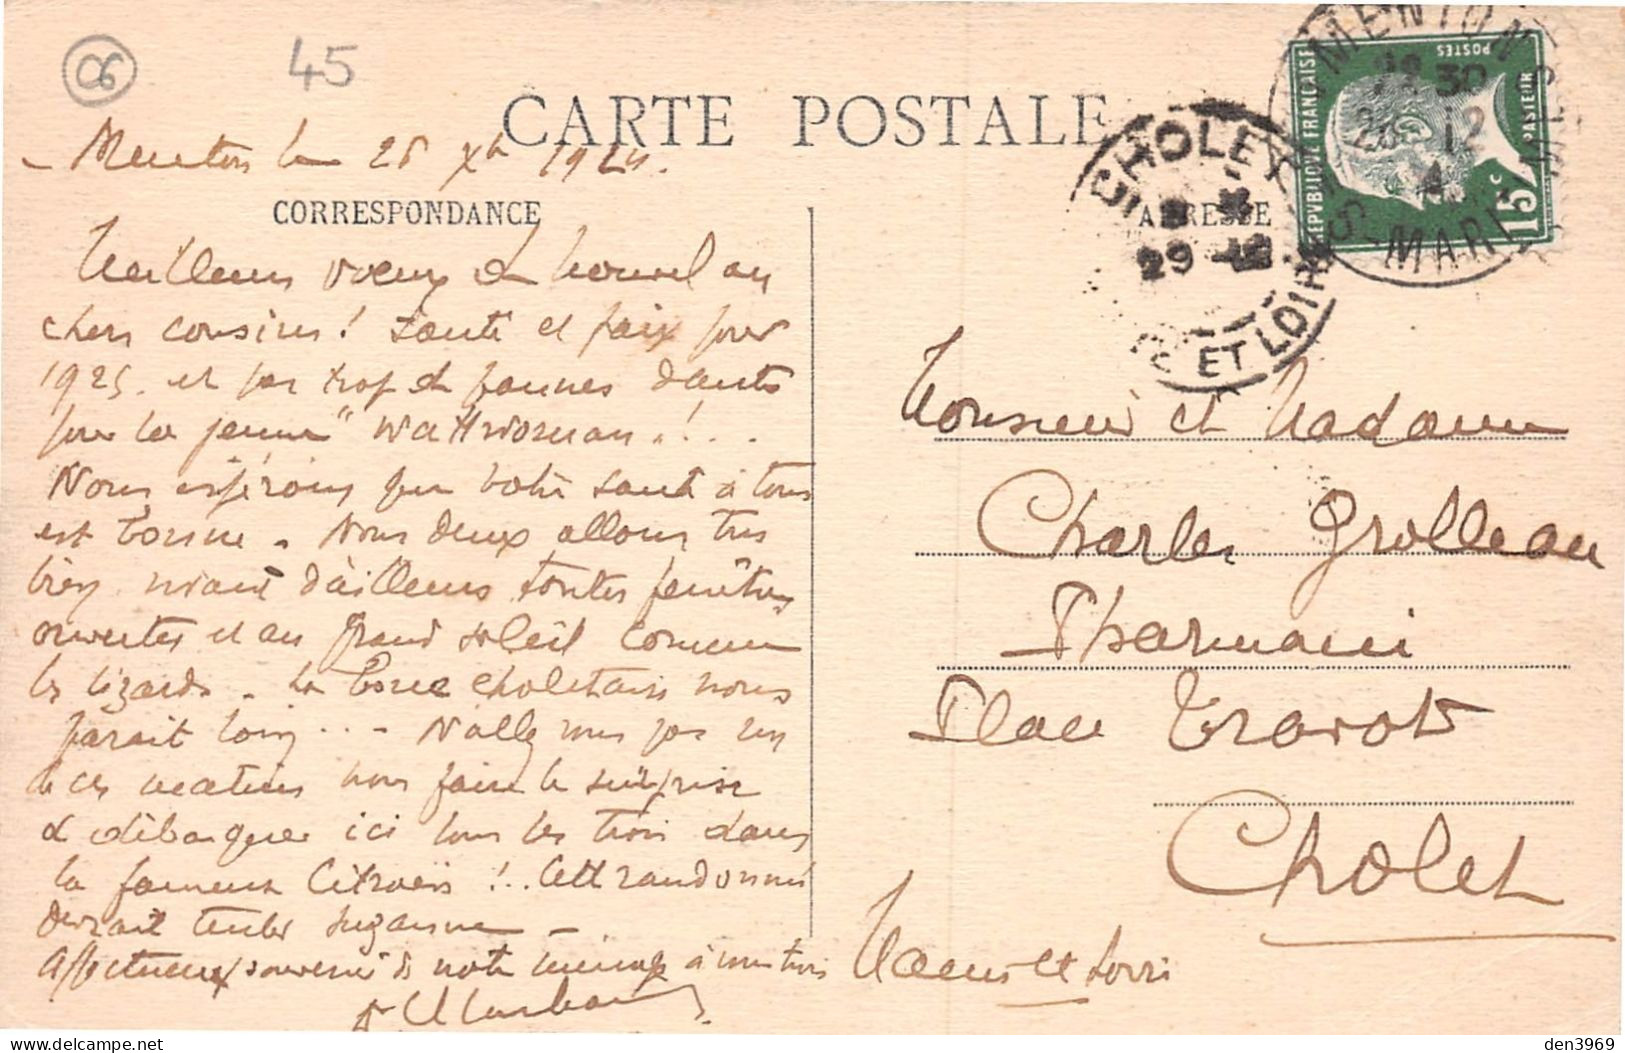 06
45
CARTE POSTALE
Menton le 26 Xbre 1924.
CORRESPONDANCE
ADRESSE
MENTON
12 30
26 12
ALPES-MARI
REPVBLIQVE FRANÇAISE
POSTES
PASTEUR
15c
CHOLET
29 12
ET LOIRE
Meilleurs voeux de nouvel an
chers cousins! Santé et paix pour
1925. et pas trop de pannes d'auto
pour la jeune "wattwoman"!...
Nous espérons que votre santé à tous
est bonne. Nous deux allons très
bien vivant d'ailleurs toutes fenêtres
ouvertes et au grand soleil comme
les lézards. La boue choletaise nous
parait loin... N'allez vous pas un
de ces matins nous faire la surprise
de débarquer ici tous les trois dans
la fameuse Citroën!.. Cette randonnée
devrait tenter Suzanne.
Affectueux souvenir de notre ménage à vous trois
Monsieur et Madame
Charles Grolleau
Pharmacie
Place Travot
Cholet
Maine et Loire
den3969